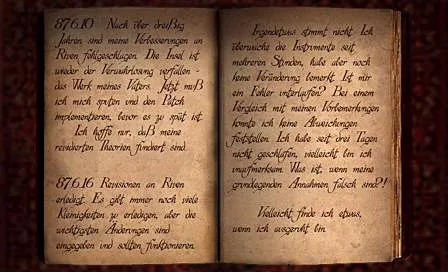 87.6.10 Nach über dreißig
Jahren sind meine Verbesserungen an
Riven fehlgeschlagen. Die Insel ist
wieder der Verwahrlosung verfallen -
das Werk meines Vaters. Jetzt muß
ich mich sputen und den Patch
implementieren, bevor es zu spät ist.
Ich hoffe nur, daß meine
revidierten Theorien fundiert sind.
87.6.16 Revisionen an Riven
erledigt. Es gibt immer noch viele
Kleinigkeiten zu erledigen, aber die
wichtigsten Änderungen sind
eingegeben und sollten funktionieren.
Irgendetwas stimmt nicht. Ich
überwache die Instrumente seit
mehreren Stunden, habe aber noch
keine Veränderung bemerkt. Ist mir
ein Fehler unterlaufen? Bei einem
Vergleich mit meinen Vorbemerkungen
konnte ich keine Abweichungen
feststellen. Ich habe seit drei Tagen
nicht geschlafen, vielleicht bin ich
unaufmerksam. Was ist, wenn meine
grundlegenden Annahmen falsch sind?!
Vielleicht finde ich etwas,
wenn ich ausgeruht bin.